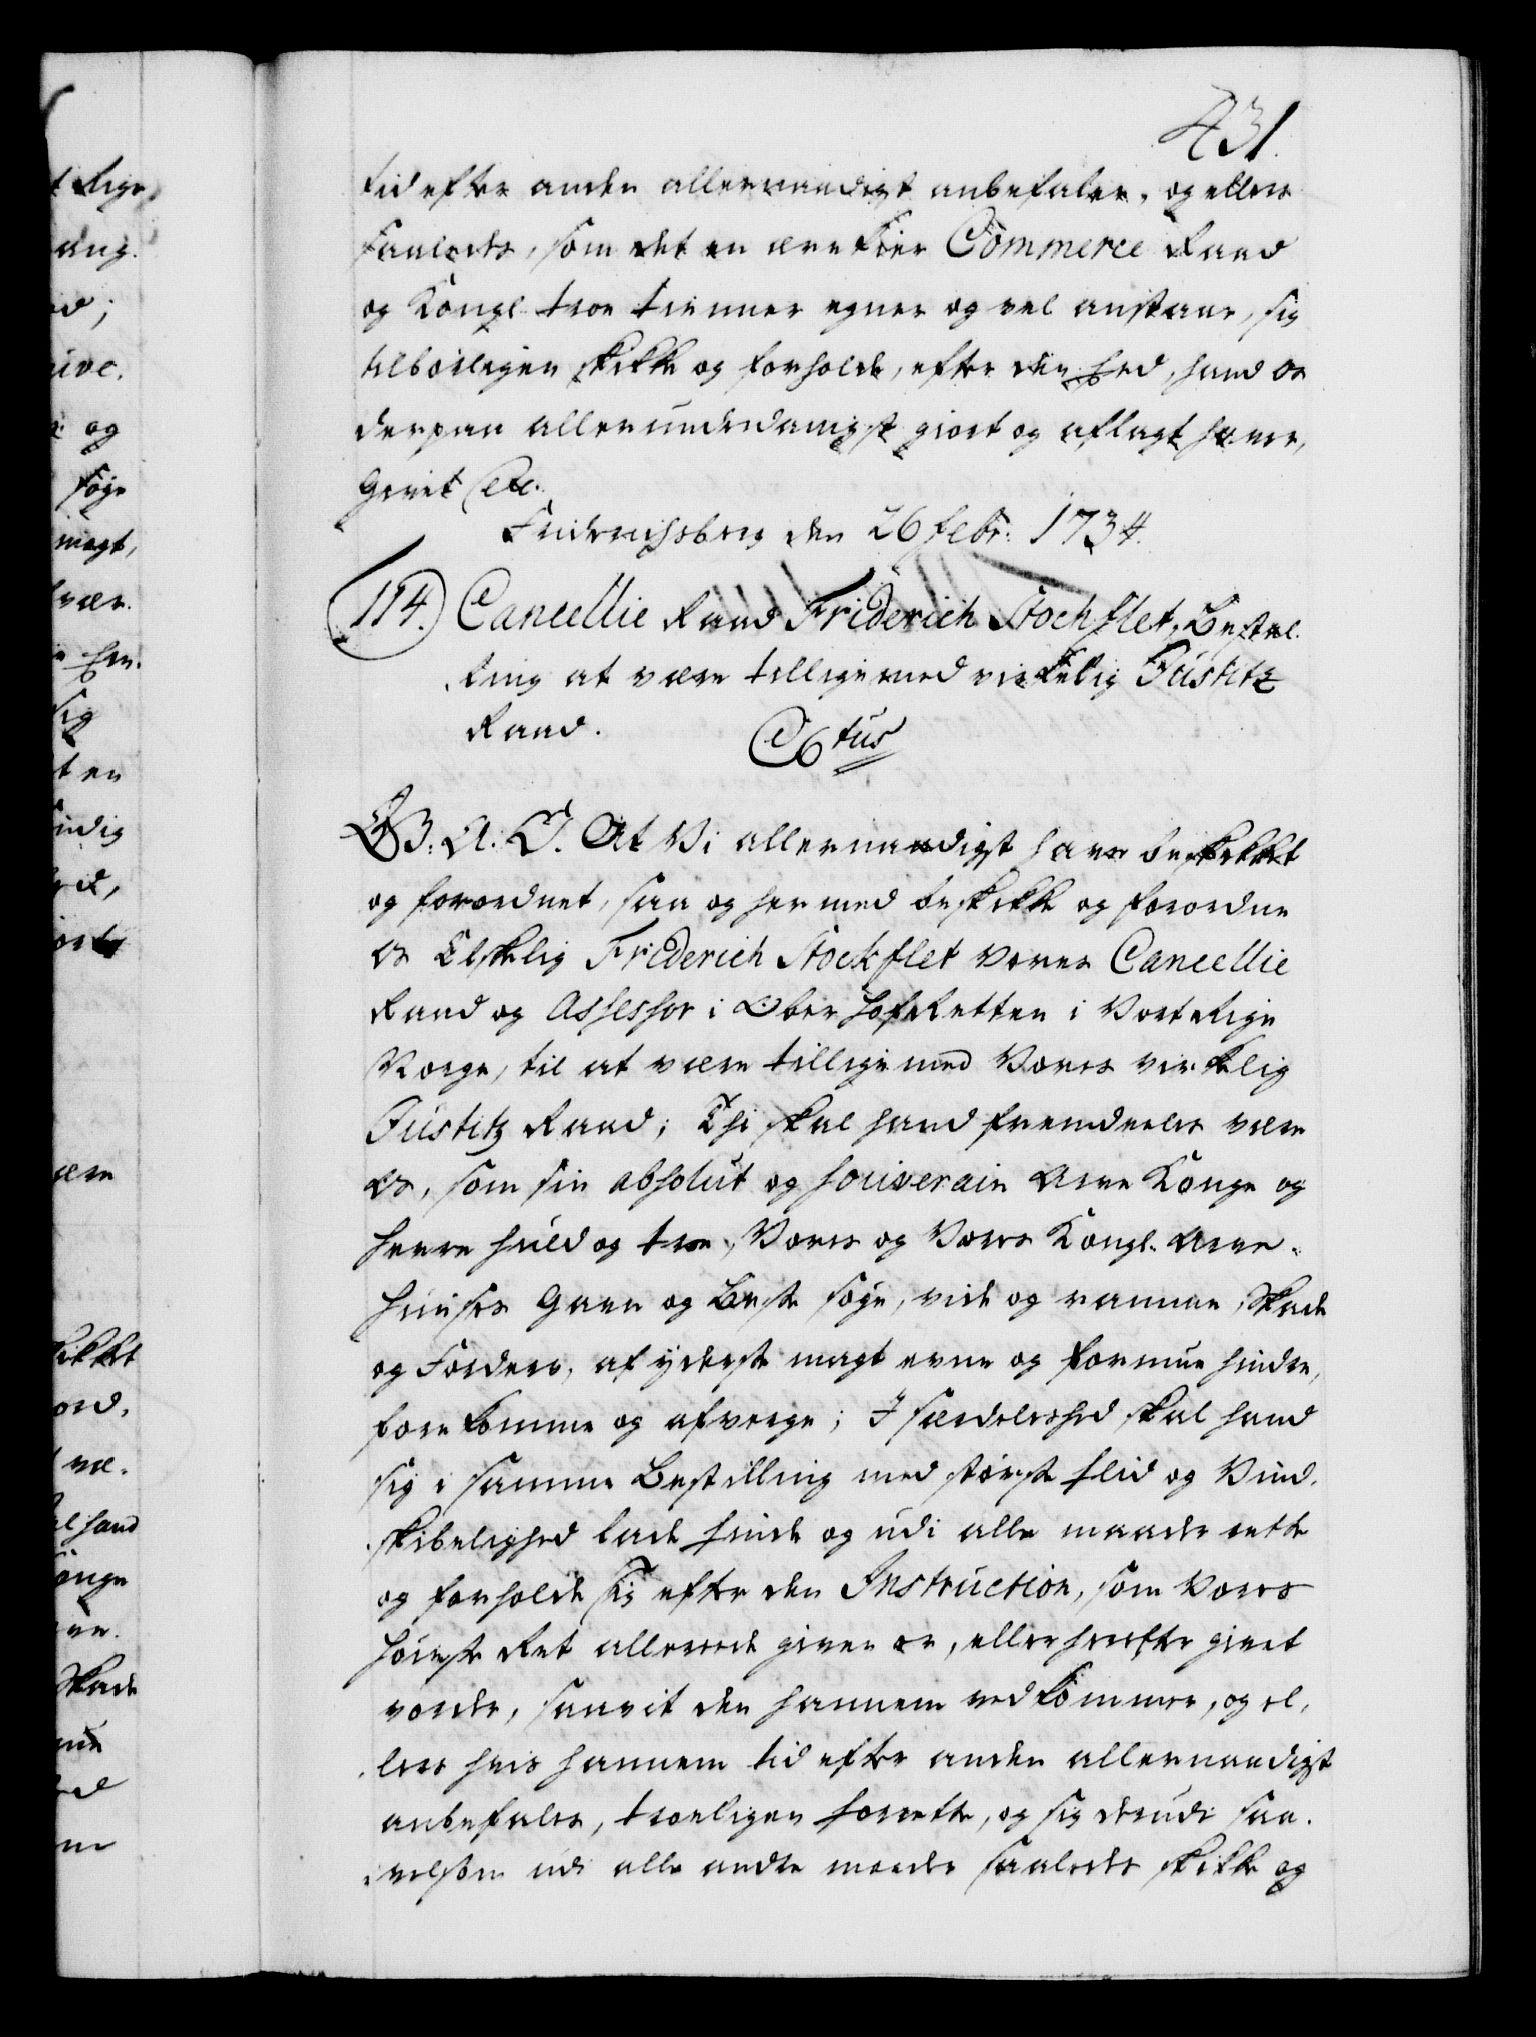 431.
tid efter anden allernaadigst anbefaler, og ellers
saaledes, som det en ærekier Commerce Raad
og Kongl. troe tienner egner og vel anstaar, sig
tilbørligen skikke og forholde, efter den Eed, hand Os
derpaa allerunderdanigst giort og aflagt haver,
Givet etc.
Friderichsberg den 26 Febr: 1734.
114. Cancellie Raad Friderich Stockflet, Bestal¬
ling at være tilligemed virkelig Justitz
Raad.
C6tus
G. A. V. At Vi allernaadigst haver beskikket
og forordnet, saa og hermed beskikke og forordne
Os Elskelig Friderich Stockflet Vores Cancellie
Raad og Assessor i Ober Hof Retten i Vort Rige
Norge, til at være tilligemed Vores virkelig
Justitz Raad; Thi skal hand fremdeeles være
Os, som sin absolut og souverain Arve Konge og
Herre huld og troe, Vores og Vores Kongl. Arve¬
Huuses Gavn og Beste søge, vide og ramme, Skade
og Fordærv, af yderste magt evne og formue hindre,
forekomme og afværge; I særdeleshed skal hand
sig i samme Bestilling med største flid og Vind¬
skibelighed lade finde og udi alle maader rette
og forholde sig efter den Instruction, som Vores
Høieste Ret allerede given er, eller herefter givet
vorder, saavit den hannem vedkommer, og el¬
lers hvis hannem tid efter anden allernaadigst
anbefales, troeligen forrette, og sig derudi saa¬
velsom udi alle andre maader saaledes skikke og